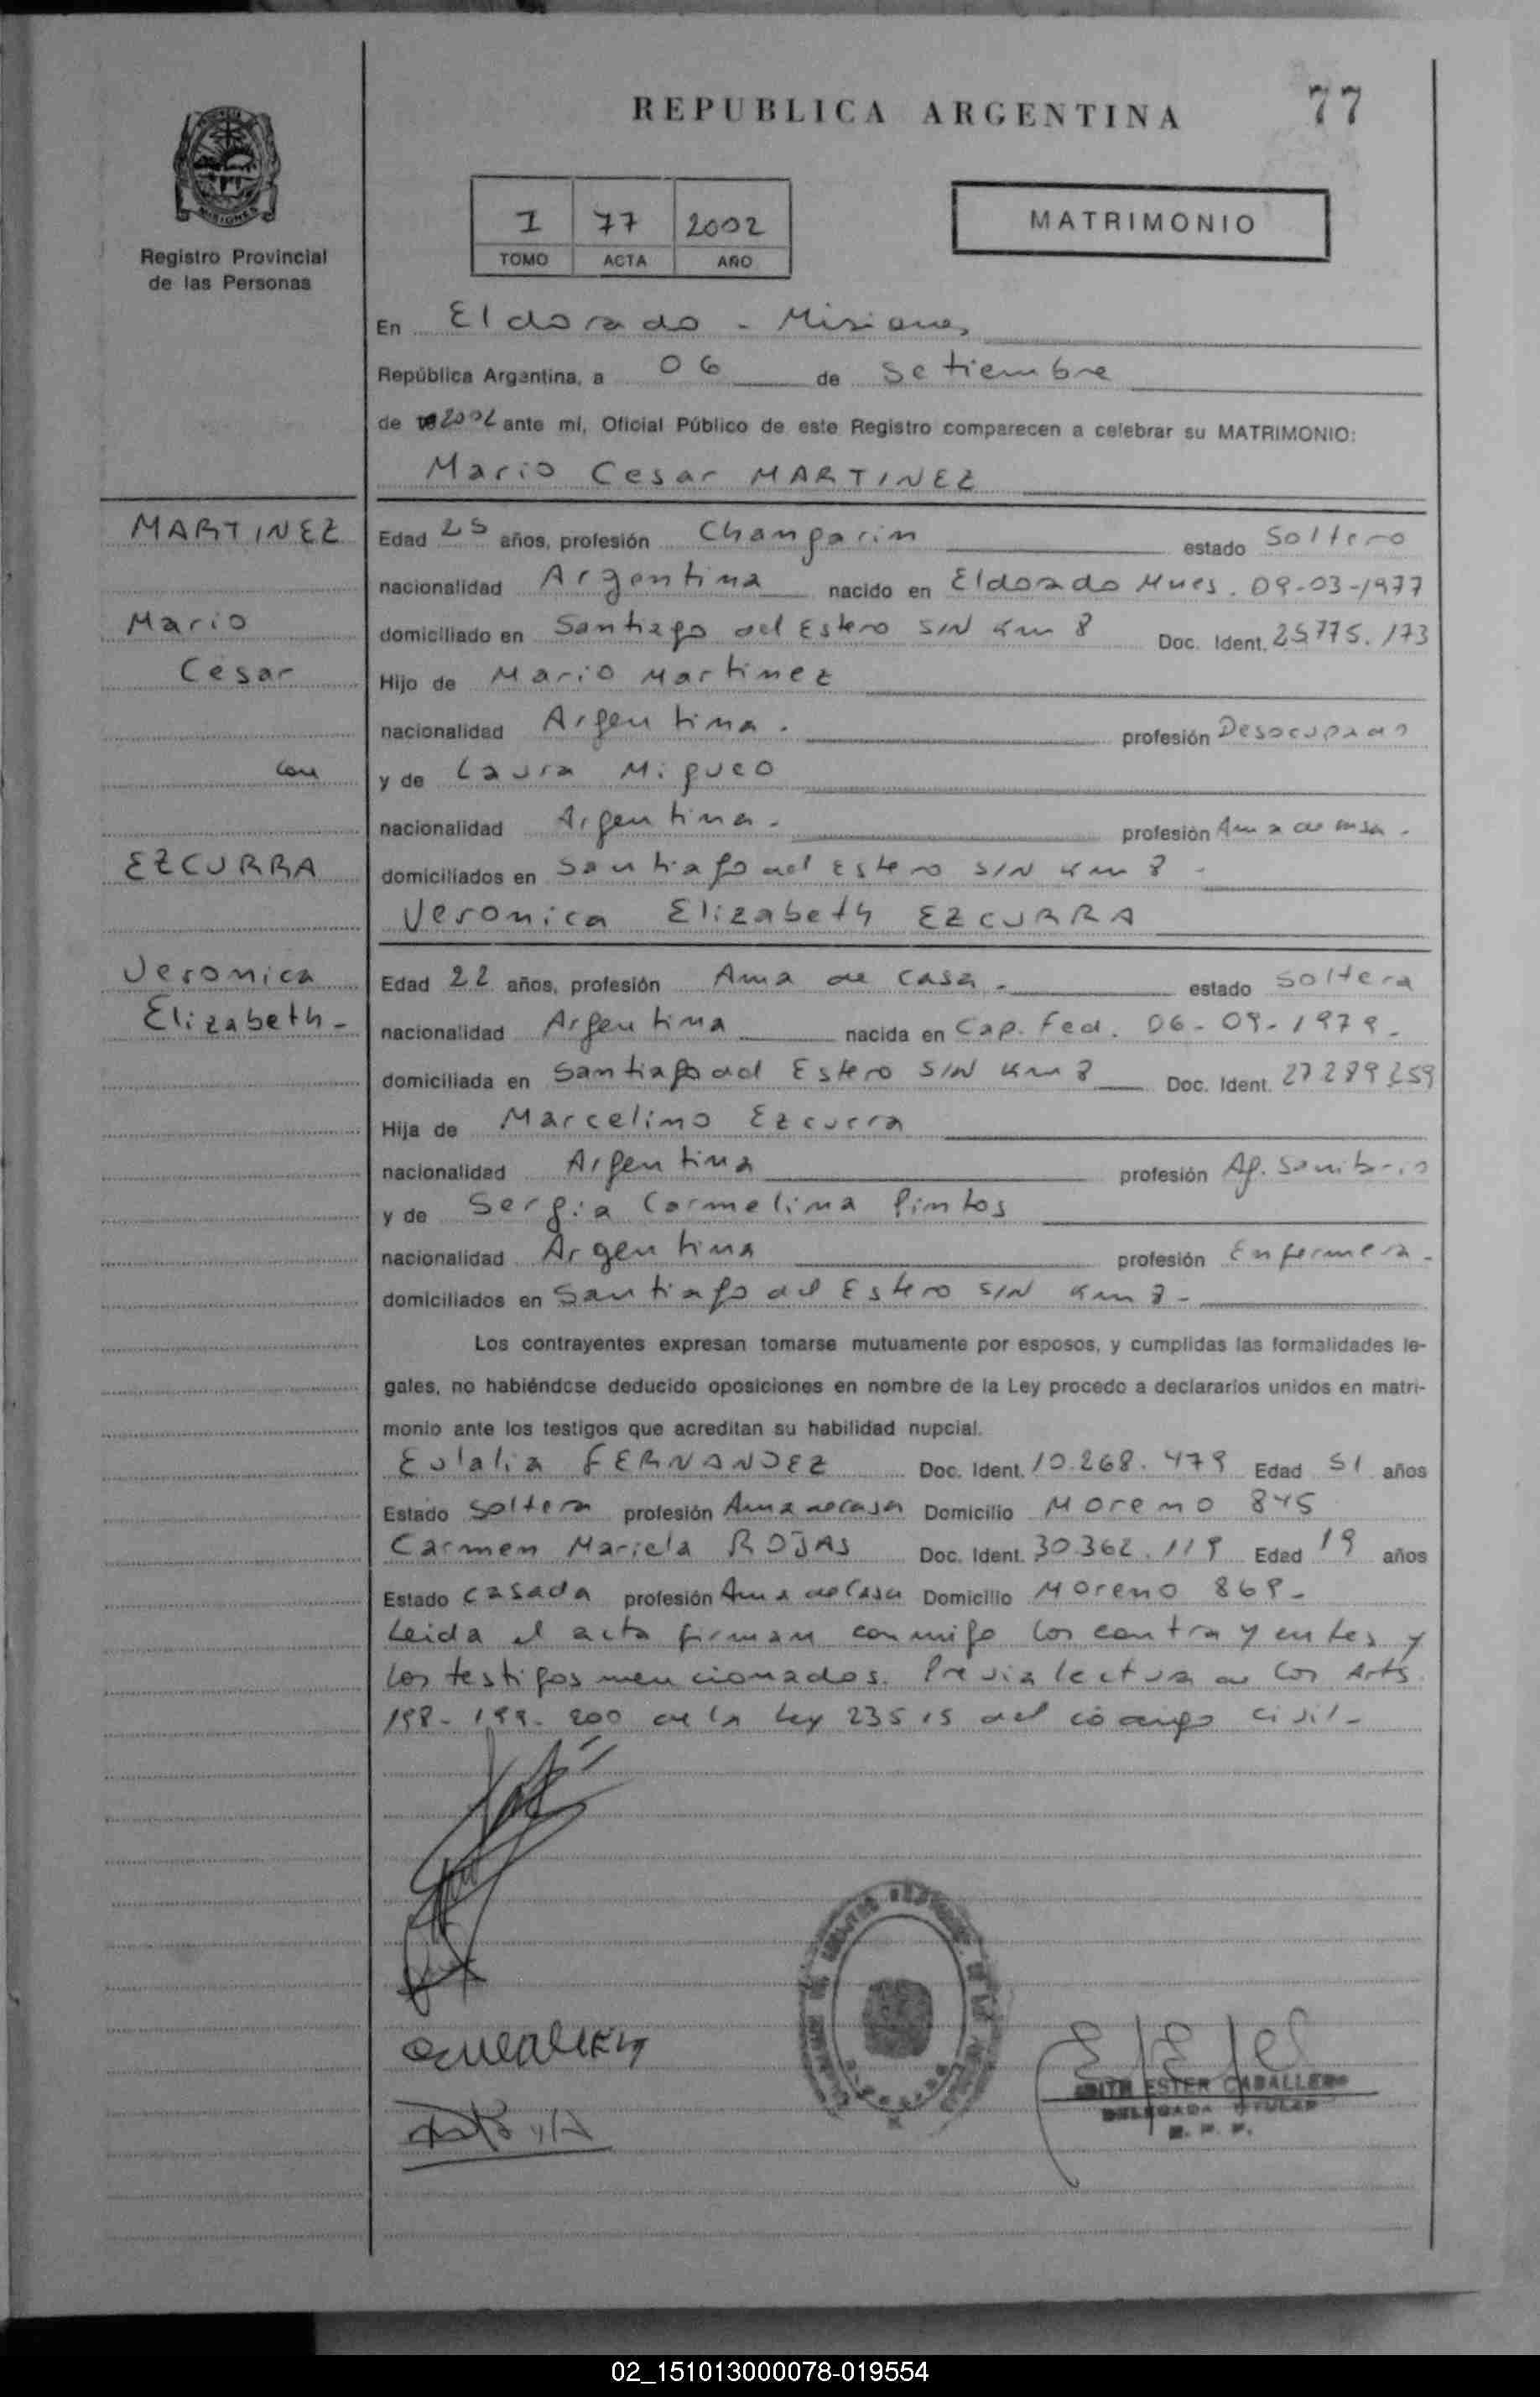 REPUBLICA ARGENTINA
77
MISIONES
Registro Provincial
de las Personas
I 77 2002
TOMO ACTA AÑO
MATRIMONIO
En Eldorado - Misiones
República Argentina, a 06 de Setiembre
de 2002 ante mí, Oficial Público de este Registro comparecen a celebrar su MATRIMONIO:
Mario Cesar MARTINEZ
MARTINEZ
Mario
Cesar
con
EZCURRA
Veronica
Elizabeth-
Edad 25 años, profesión Changarin estado Soltero
nacionalidad Argentina nacido en Eldorado Mnes. 09-03-1977
domiciliado en Santiago del Estero S/N Km 8 Doc. Ident. 25.775.173
Hijo de Mario Martinez
nacionalidad Argentina. profesión Desocupado
y de Laura Migueo
nacionalidad Argentina. profesión Ama de casa.
domiciliados en Santiago del Estero S/N Km 8 -
Veronica Elizabeth EZCURRA
Edad 22 años, profesión Ama de casa. estado Soltera
nacionalidad Argentina nacida en Cap. Fed. 06-09-1979.
domiciliada en Santiago del Estero S/N Km 8 Doc. Ident. 27 289 259
Hija de Marcelino Ezcurra
nacionalidad Argentina profesión Ag. Sanitario
y de Sergia Carmelina Pintos
nacionalidad Argentina profesión Enfermera-
domiciliados en Santiago del Estero S/N Km 8-
Los contrayentes expresan tomarse mutuamente por esposos, y cumplidas las formalidades le-
gales, no habiéndose deducido oposiciones en nombre de la Ley procedo a declararlos unidos en matri-
monio ante los testigos que acreditan su habilidad nupcial.
Eulalia FERNANDEZ Doc. Ident. 10.268.479 Edad 51 años
Estado Soltera profesión Ama de casa Domicilio Moreno 845
Carmen Mariela ROJAS Doc. Ident. 30.362.119 Edad 19 años
Estado Casada profesión Ama de Casa Domicilio Moreno 869-
Leida el acta firman conmigo los contrayentes y
los testigos mencionados. Previa lectura de los Arts
198-199-200 de la Ley 23515 del código civil-
EDITH ESTER CABALLERO
DELEGADA TITULAR
R. P. P.
02_151013000078-019554